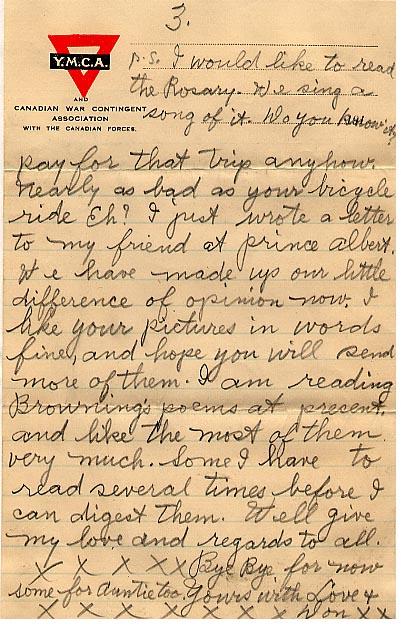 3.
Y.M.C.A.
AND
CANADIAN WAR CONTINGENT
ASSOCIATION
WITH THE CANADIAN FORCES.
P.S. I would like to read
the Rosary. We sing a
song of it. Do you know it?
pay for that trip anyhow.
Nearly as bad as your bicycle
ride Eh? I just wrote a letter
to my friend at prince albert.
We have made up our little
difference of opinion now. I
like your pictures in words
fine, and hope you will send
more of them. I am reading
Browning's poems at present,
and like the most of them
very much. Some I have to
read several times before I
can digest them. Well give
my love and regards to all.
X X X X X Bye Bye for now
some for Auntie too. Yours with Love &
X X X X X X X Don X X